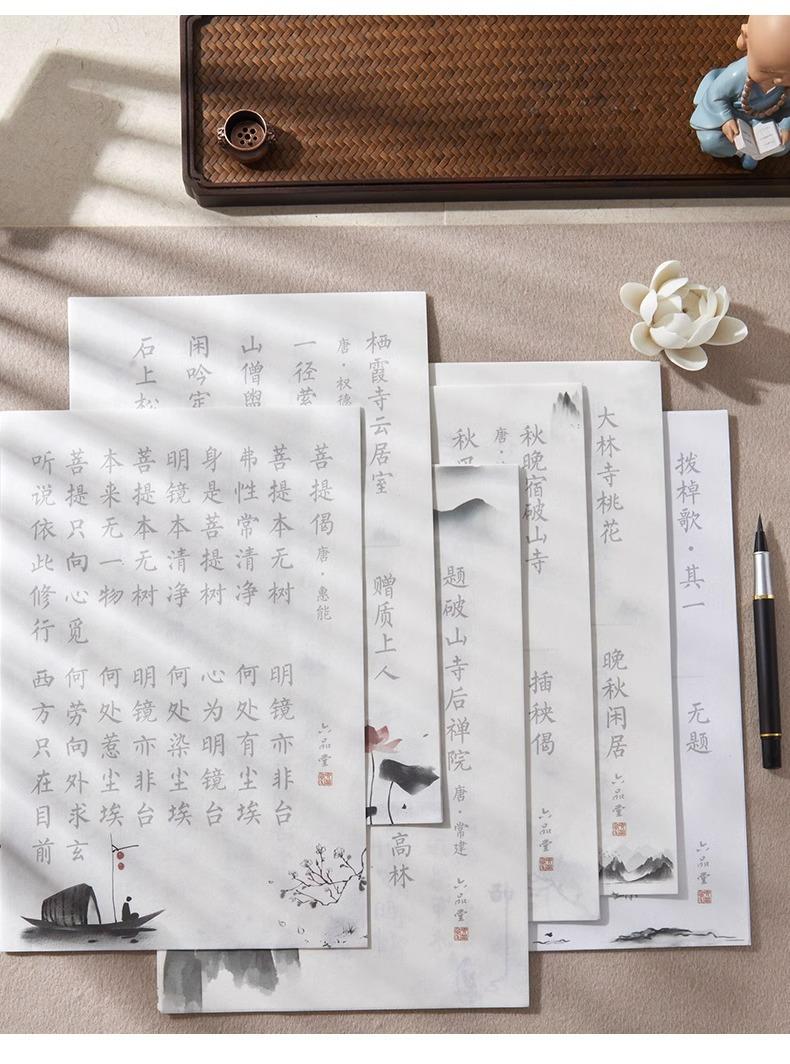 菩提偈 唐·惠能
菩提本无树 明镜亦非台
弗性常清净 何处有尘埃
身是菩提树 心为明镜台
明镜本清净 何处染尘埃
菩提本无树 明镜亦非台
本来无一物 何处惹尘埃
菩提只向心觅 何劳向外求玄
听说依此修行 西方只在目前
六品堂
栖霞寺云居室
唐·权德
一径萦
山僧
闲吟
石上松
赠质上人
题破山寺后禅院 唐·常建
高林
六品堂
秋晚宿破山寺
唐·
秋
插秧偈
六品堂
大林寺桃花
晚秋闲居
六品堂
拨棹歌·其一
无题
六品堂